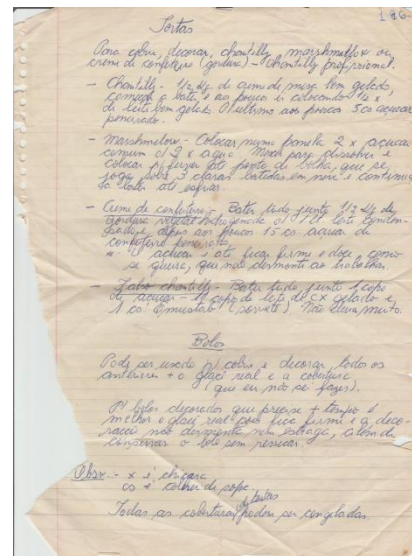 196
Tortas
Para cobrir, decorar, chantilly, marshmallow ou
creme de confeiteiro (gordura) - chantilly profissional.
- Chantilly - 1/2 kg de creme de mesa bem gelado,
começa a bater e aos poucos ir colocando 1/2 x
de leite bem gelado. O último aos poucos 5 co açucar
peneirado.
- Marshmelow - Colocar numa panela 2 x açucar
comum c/ 2 x agua. Mexer para dissolver e
colocar p/ ferver até ponto de bolha, que se
joga sobre 3 claras batidas em neve e continua
a bater até esfriar.
- Creme de confeiteiro - Bater tudo junto 1/2 kg de
gordura vegetal hidrogenada c/ 1 lt leite
gelado, e depois aos poucos 15 co acucar de
confeiteiro peneirado.
O açucar é até ficar firme e doce como
se queira, que não desmonte ao trabalhar.
- Falso chantilly - Bater tudo junto 1 copo
de açucar - 1 copo de leite de cx gelado e
1 co Emustab (sorvete) Não dura muito.
Bolos
Pode ser usado p/ cobrir e decorar, todos os
anteriores + o glacê real e a cobertura
(que eu não sei fazer).
P/ bolos decorados que precise + tempo é
melhor o glacê real pois fica firme e a deco-
racão não derrete nem estraga, além de
conservar o bolo sem ressecar.
Obs: - x é chicara
co é colher de sopa
Todas as coberturas e tortas podem ser congeladas.